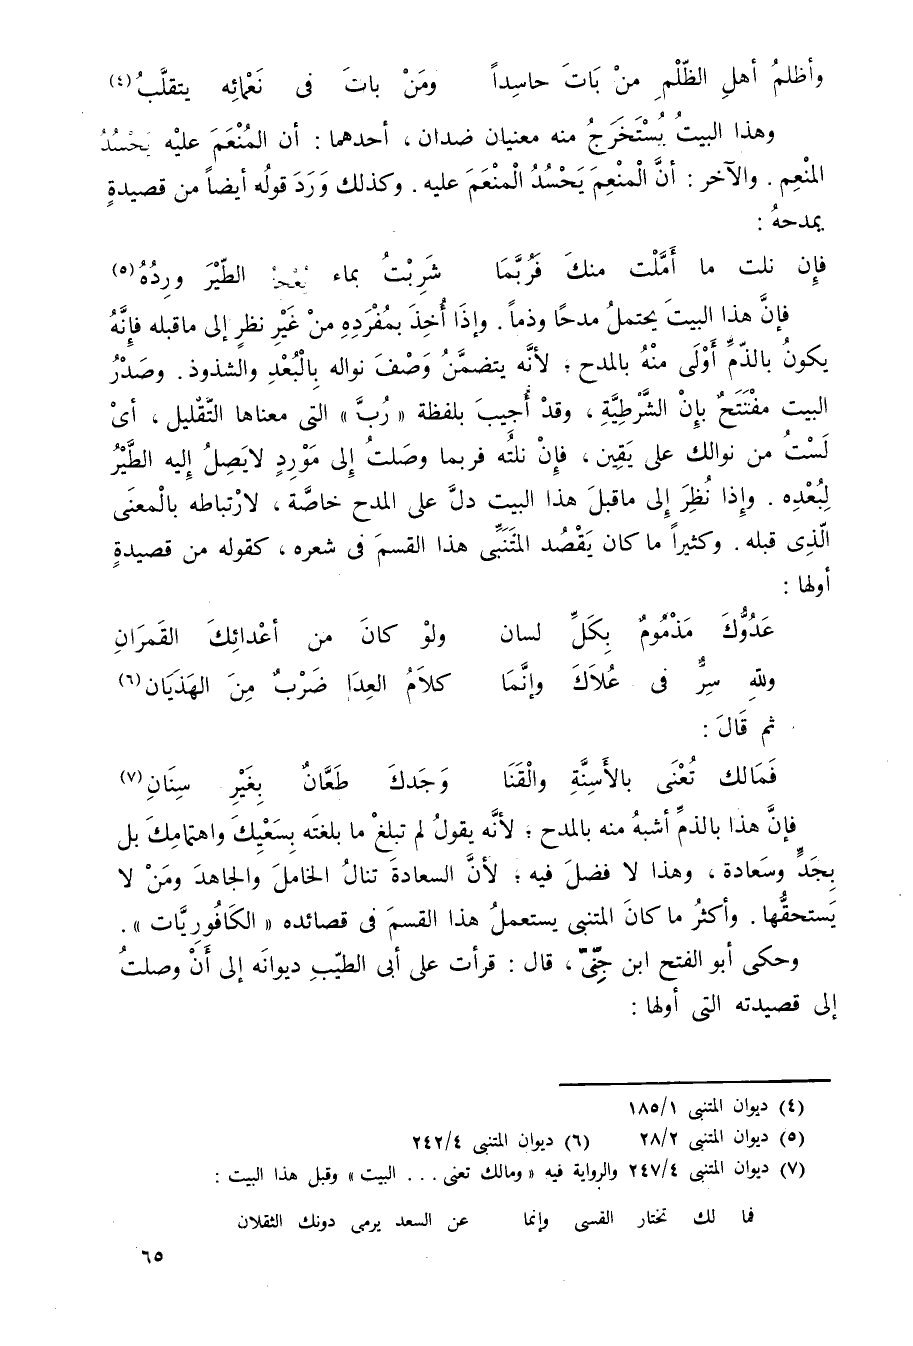 وأظلمُ أهلِ الظّلْمِ منْ بَاتَ حاسِداً ومَنْ باتَ فى نَعْمائِه يتقلَّبُ (٤)
وهذا البيتُ يُسْتَخرَجُ منه معنيان ضدان ، أحدهما : أن المُنْعَمَ عليْه يَحْسُدُ
المنْعِم . والآخر : أنَّ الْمنْعِمَ يَحْسُدُ الْمنْعَمَ عليه . وكذلك وَرَدَ قولُه أيضاً من قصيدةٍ
يمدحهُ :
فإِن نلت ما أَمَّلْت منكَ فَرُبَّمَا شَرِبْتُ بماء يُعْجِزُ الطيْرَ وردُهُ (٥)
فإنَّ هذا البيتَ يحتملُ مدحًا وذماً . وإذَا أُخِذَ بمُفْرَدِهِ منْ غَيْرِ نظرٍ إلى ماقبله فإنَّهُ
يكونُ بالذّمِّ أَوْلَى منْهُ بالمدح ؛ لأنَّه يتضمَّنُ وَصْفَ نواله بِالْبُعْدِ والشذوذ . وصَدْرُ
البيت مفْتَتَحٌ بإنْ الشَّرْطِيَّةِ ، وقدْ أُجيبَ بلفظة « رُبَّ » التى معناها التَّقْليل ، أىْ
لَسْتُ من نوالك على يَقِين ، فإنْ نلتُه فربما وصَلتُ إلى مَوْرِدٍ لايَصِلُ إليه الطَّيْرُ
لِبُعْدِه . وإذا نُظِرَ إلى ماقبلَ هذا البيت دلَّ على المدح خاصَّة ، لارْتباطه بالْمعنَى
الّذِى قبله . وكثيراً ما كان يَقْصُد المتَنَبِّى هذا القسمَ فى شعره ، كقوله من قصيدةٍ
أولها :
عَدُوُّكَ مَذْمُومٌ بِكَلِّ لسان ولوْ كانَ من أعْدائِكَ القَمرَانِ
وللهِ سِرٌّ فى عُلاَكَ وإنَّمَا كلاَمُ العِدَا ضَرْبٌ مِنَ الهَذَيَان (٦)
ثم قَالَ :
فَمَالك تُعْنَى بالأَسِنَّةِ والْقَنَا وَجَدكَ طَعَّانٌ بِغَيْرِ سِنَانِ (٧)
فإنَّ هذا بالذمِّ أشبهُ منه بالمدح ؛ لأنَّه يقولُ لم تبلغْ ما بلغتَه بِسَعْيِكَ واهتمامِكَ بل
بِجَدٍّ وسَعادة ، وهذا لا فضلَ فيه ؛ لأنَّ السعادةَ تنالُ الخاملَ والجاهدَ ومَنْ لا
يَستحقُّها . وأكثرُ ما كانَ المتنبى يستعملُ هذا القسمَ فى قصائده « الكَافُورِيَّات » .
وحكى أبو الفتح ابن جِنِّىّ ، قال : قرأت على أبى الطيّبِ ديوانَه إلى أَنْ وصلتُ
إلى قصيدته التى أولها :
(٤) ديوان المتنبى ١٨٥/١
(٥) ديوان المتنبى ٢٨/٢ (٦) ديوان المتنبى ٢٤٢/٤
(٧) ديوان المتنبى ٢٤٧/٤ والرواية فيه « ومالك تعنى ... البيت » وقبل هذا البيت :
فما لك تختار القسى وإنما عن السعد يرمى دونك الثقلان
٦٥